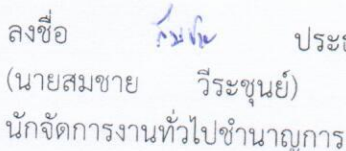 ลงชื่อ ประธ
(นายสมชาย วีระชุนย์)
นักจัดการงานทั่วไปชำนาญการ